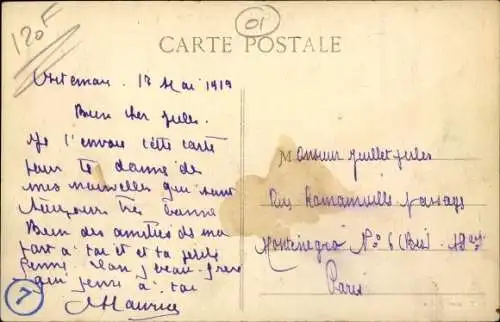 01
120F
CARTE POSTALE
Artemare . 18 Mai 1919
Bien cher jules.
Je t'envoie cette carte
pour te donne des
mes nouvelles qui sont
toujours très bonne
Bien des amitiés de ma
part à toi et ta petite
femme. ton beau-frère
qui pense à toi
Maurice
7
Monsieur Juillet jules
Rue Romainville passage
Montenegro No 6 (Bis) 19
Paris